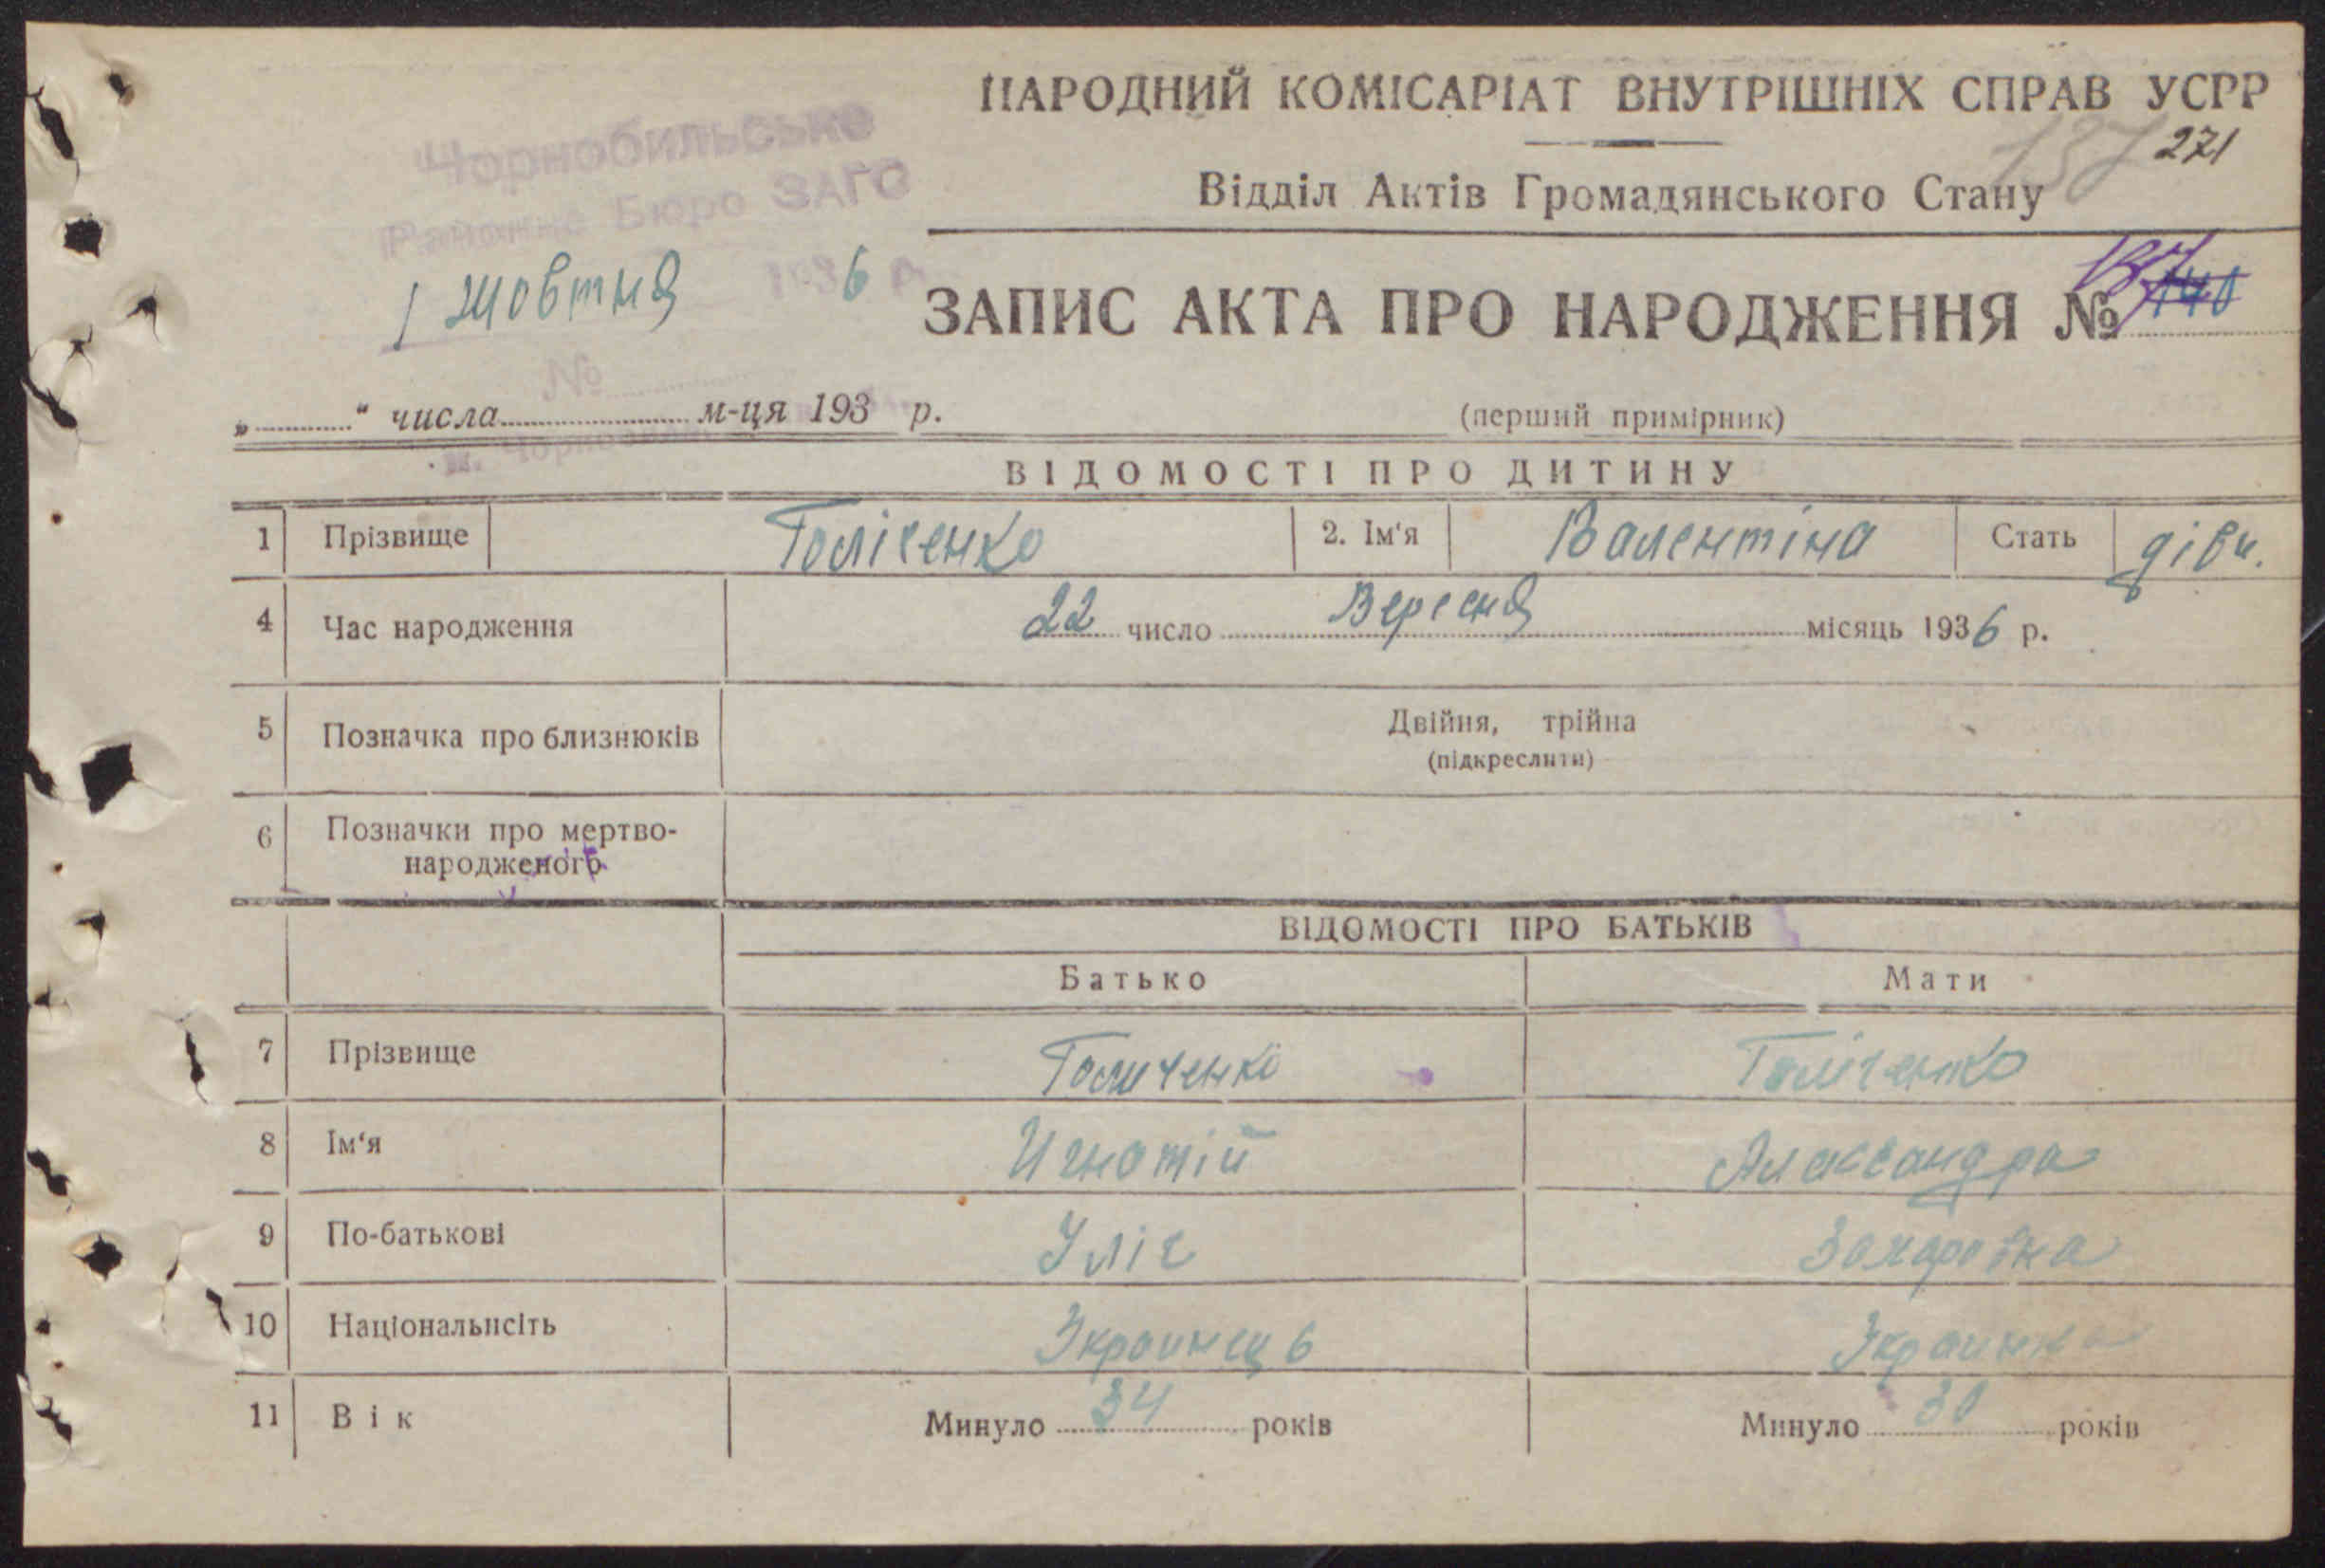 НАРОДНИЙ КОМІСАРІАТ ВНУТРІШНІХ СПРАВ УСРР
137 271
Відділ Актів Громадянського Стану
Чорнобильське
Районне Бюро ЗАГС
1 жовтня 1936 р.
ЗАПИС АКТА ПРО НАРОДЖЕННЯ № 137 140
№
„ “ числа м-ця 193 р.
(перший примірник)
ВІДОМОСТІ ПРО ДИТИНУ
1 Прізвище Голіченко 2. Ім‘я Валентіна Стать дівч.
4 Час народження 22 число Вересня місяць 1936 р.
5 Позначка про близнюків Двійня, трійна
(підкреслити)
6 Позначки про мертво-
народженого
ВІДОМОСТІ ПРО БАТЬКІВ
Батько Мати
7 Прізвище ГоличенкоГоліченко
8 Ім‘я Игнатій Александра
9 По-батькові Уліч Захаровна
10 Національнсіть Украинець Украинка
11 Вік Минуло 34 років Минуло 30 років